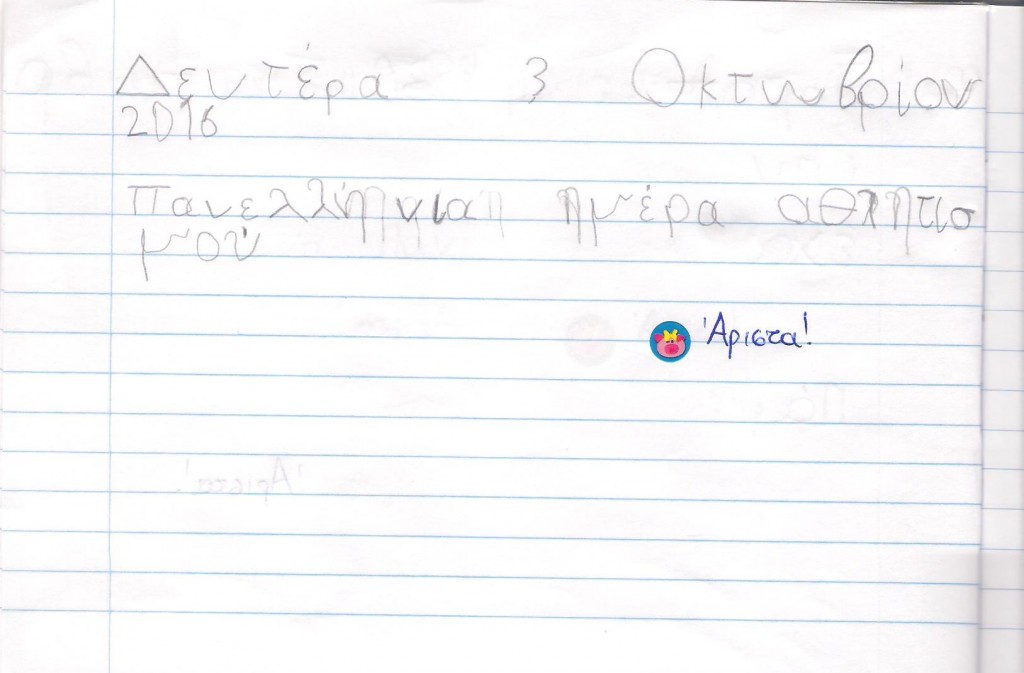 Δευτέρα 3 Οκτωβρίου
2016
Πανελλήνια ημέρα αθλητισ
μού
Άριστα!